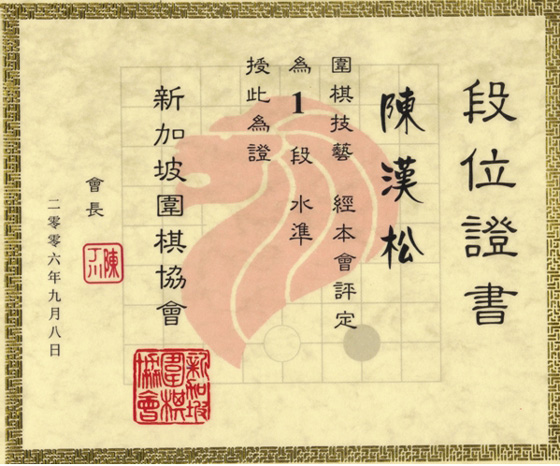 段位證書
陳漢松
圍棋技藝 經本會評定
為1段 水準
授此為證
新加坡圍棋協會
會長
二零零六年九月八日
新加坡圍棋協會